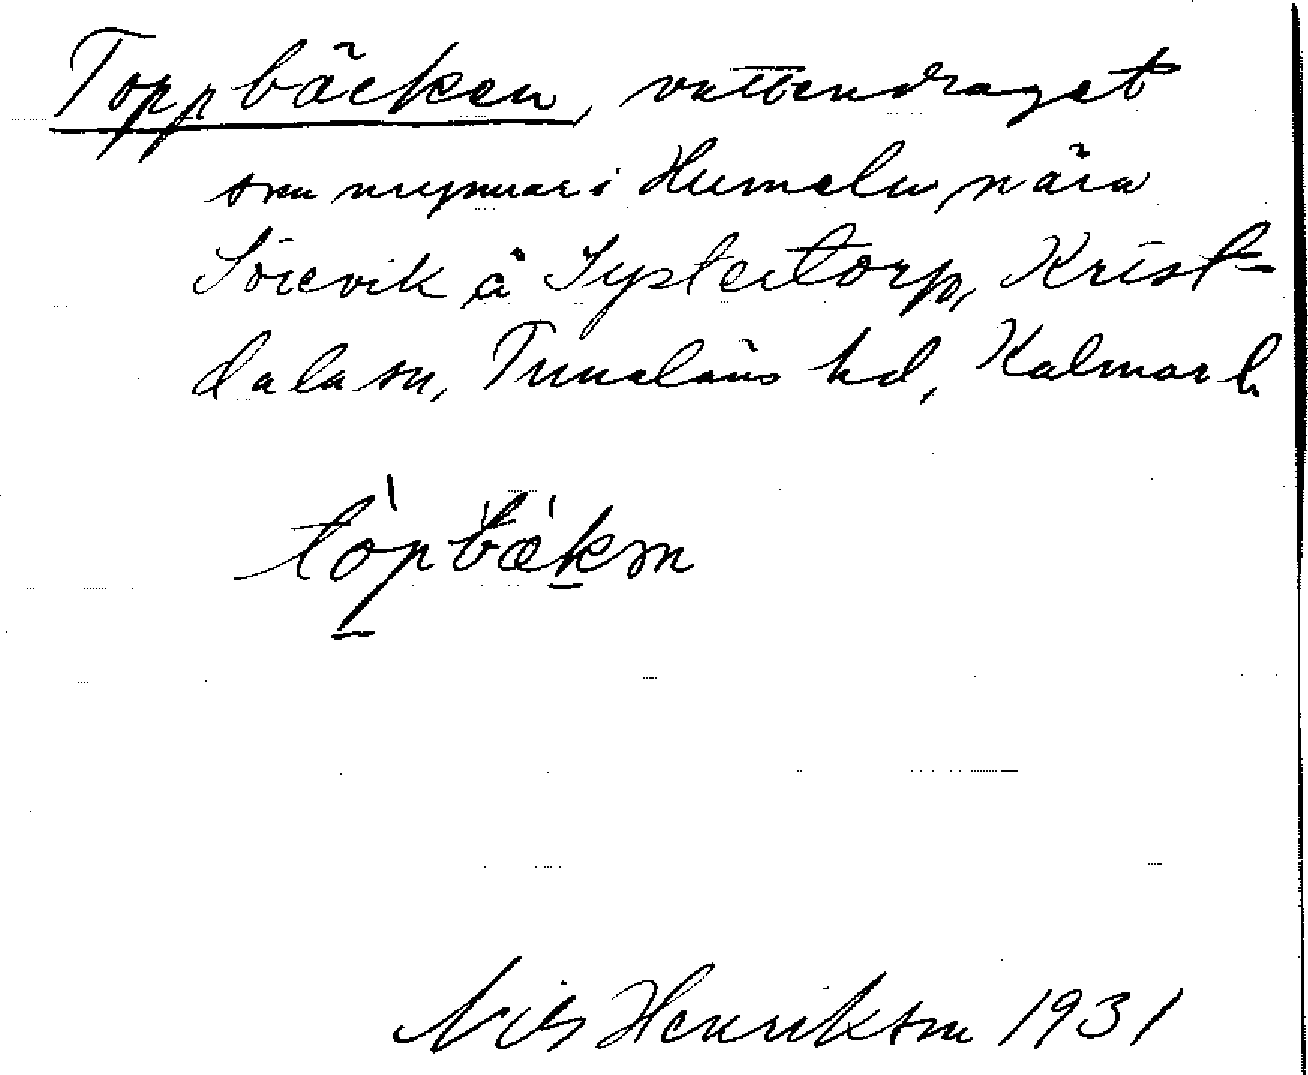 Toppbäcken, vattendraget
som mynnar i Humeln nära
Sörevik å Systertorp, Krist-
dala sn, Tunaläns hd, Kalmar l.
töpbækm
Nils Henrikson 1931